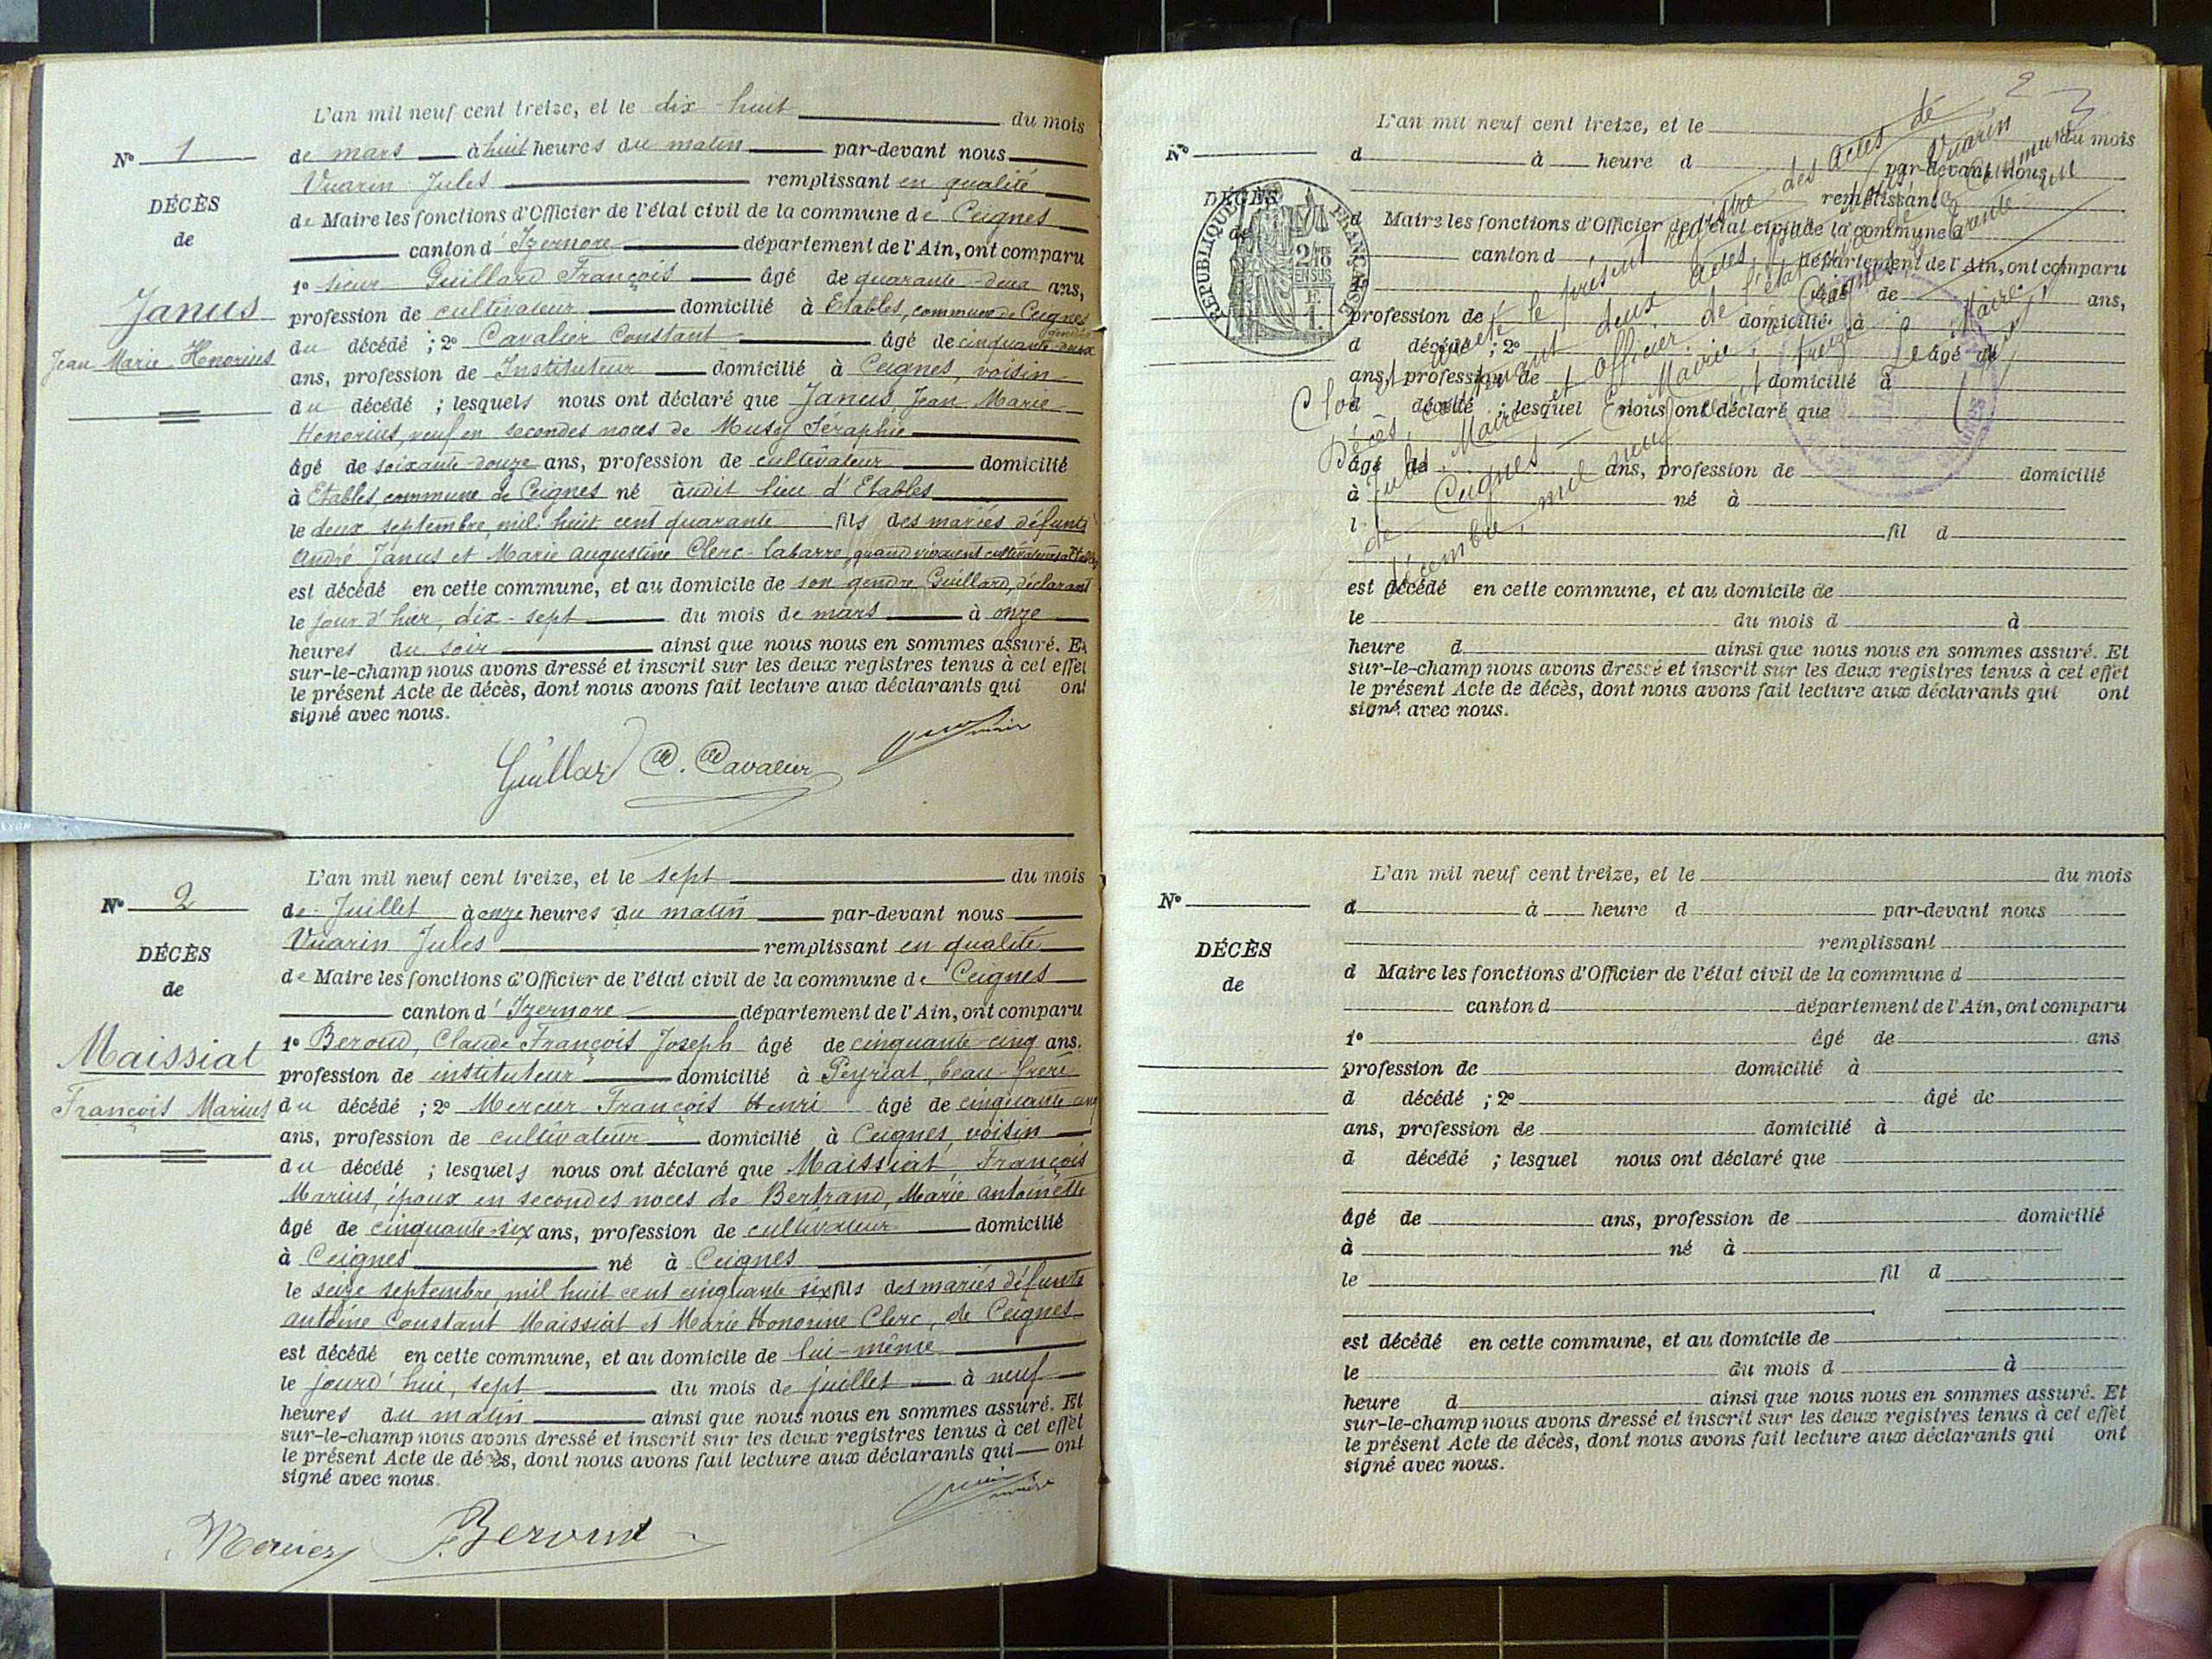 L'an mil neuf cent treize, et le dix-huit du mois
N° 1
de mars à huit heures du matin par-devant nous
Vuarin Jules remplissant en qualité
DÉCÈS
de Maire les fonctions d'Officier de l'état civil de la commune de Ceignes
de
canton d'Izernore département de l'Ain, ont comparu
1° sieur Guillard François âgé de quarante-deux ans,
Janus
profession de cultivateur domicilié à Etables, commune de Ceignes
gendre
Jean Marie Honorius
du décédé ; 2° Cavalier Constant âgé de cinquante-deux
ans, profession de Instituteur domicilié à Ceignes, voisin
du décédé ; lesquels nous ont déclaré que Janus, Jean Marie
Honorius, veuf en secondes noces de Musy Séraphie
âgé de soixante-douze ans, profession de cultivateur domicilié
à Etables, commune de Ceignes né audit lieu d'Etables
le deux septembre, mil huit cent quarante fils des mariés défunts
André Janus et Marie Augustine Clerc-labarre, quand vivaient cultivateurs
est décédé en cette commune, et au domicile de son gendre, Guillard, déclarant
le jour d'hier, dix-sept du mois de mars à onze
heures du soir ainsi que nous nous en sommes assuré. Et
sur-le-champ nous avons dressé et inscrit sur les deux registres tenus à cet effet
le présent Acte de décès, dont nous avons fait lecture aux déclarants qui ont
signé avec nous.
Guillard C. Cavalier
L'an mil neuf cent treize, et le sept du mois
N° 2
de Juillet à onze heures du matin par-devant nous
Vuarin Jules remplissant en qualité
DÉCÈS
de Maire les fonctions d'Officier de l'état civil de la commune de Ceignes
de
canton d'Izernore département de l'Ain, ont comparu
1° Beroud, Claude François Joseph âgé de cinquante-cinq ans.
Maissiat
profession de instituteur domicilié à Peyriat, beau-frère
François Marius
du décédé ; 2° Mercier François Henri âgé de cinquante cinq
ans, profession de cultivateur domicilié à Ceignes, voisin
du décédé ; lesquels nous ont déclaré que Maissiat, François
Marius, époux en secondes noces de Bertrand, Marie Antoinette
âgé de cinquante-six ans, profession de cultivateur domicilié
à Ceignes né à Ceignes
le seize septembre, mil huit cent cinquante-six fils des mariés défunts
Antoine Constant Maissiat et Marie Honorine Clerc, de Ceignes
est décédé en cette commune, et au domicile de lui-même
le jourd'hui, sept du mois de juillet à neuf
heures du matin ainsi que nous nous en sommes assuré. Et
sur-le-champ nous avons dressé et inscrit sur les deux registres tenus à cet effet
le présent Acte de décès, dont nous avons fait lecture aux déclarants qui ont
signé avec nous.
Mercier F. Beroud
2
L'an mil neuf cent treize, et le du mois
N°
d à heure d par-devant nous
remplissant
DÉCÈS
de
d Maire les fonctions d'Officier de l'état civil de la commune d
canton d département de l'Ain, ont comparu
RÉPUBLIQUE FRANÇAISE
2/10 EN SUS
1° âgé de ans,
profession de domicilié à
d décédé ; 2° âgé de
ans, profession de domicilié à
d décédé ; lesquel nous ont déclaré que
âgé de ans, profession de domicilié
à né à
l fil d
est décédé en cette commune, et au domicile de
le du mois d à
heure d ainsi que nous nous en sommes assuré. Et
sur-le-champ nous avons dressé et inscrit sur les deux registres tenus à cet effet
le présent Acte de décès, dont nous avons fait lecture aux déclarants qui ont
signé avec nous.
Clos et arrêté le présent registre des actes de
Décès, contenant deux actes, par nous Vuarin
Jules, Maire et Officier de l'état civil de la commune
de Ceignes
décembre mil neuf cent treize
Le Maire
L'an mil neuf cent treize, et le du mois
N°
d à heure d par-devant nous
remplissant
DÉCÈS
d Maire les fonctions d'Officier de l'état civil de la commune d
de
canton d département de l'Ain, ont comparu
1° âgé de ans
profession de domicilié à
d décédé ; 2° âgé de
ans, profession de domicilié à
d décédé ; lesquel nous ont déclaré que
âgé de ans, profession de domicilié
à né à
le fil d
est décédé en cette commune, et au domicile de
le du mois d à
heure d ainsi que nous nous en sommes assuré. Et
sur-le-champ nous avons dressé et inscrit sur les deux registres tenus à cet effet
le présent Acte de décès, dont nous avons fait lecture aux déclarants qui ont
signé avec nous.